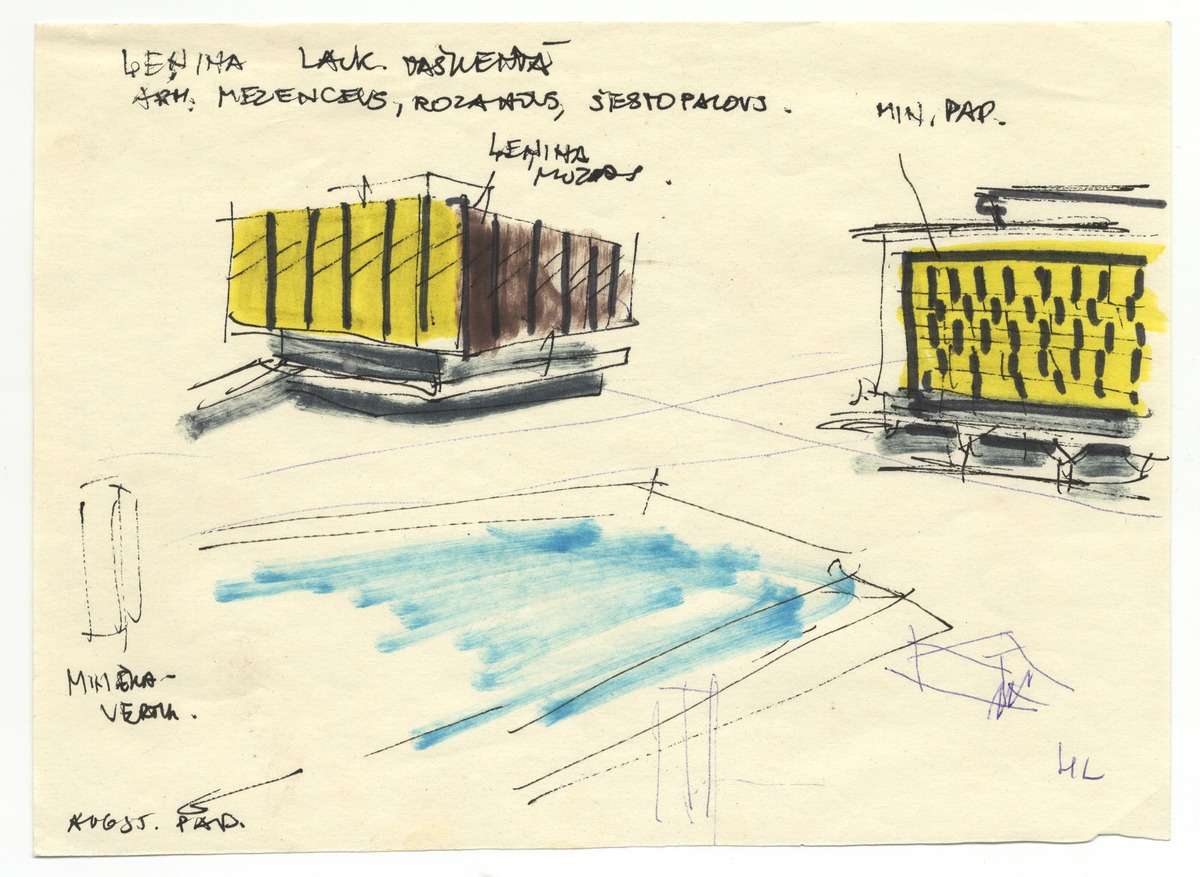 ĻEŅINA LAUK. TAŠKENTĀ
ARH. MEZENCEVS, ROZANOVS, ŠESTOPALOVS.
MIN. PAD.
ĻEŅINA
MUZEJS.
MIN. ĒKA-
VERTIK.
AUGST. PAD.
HL